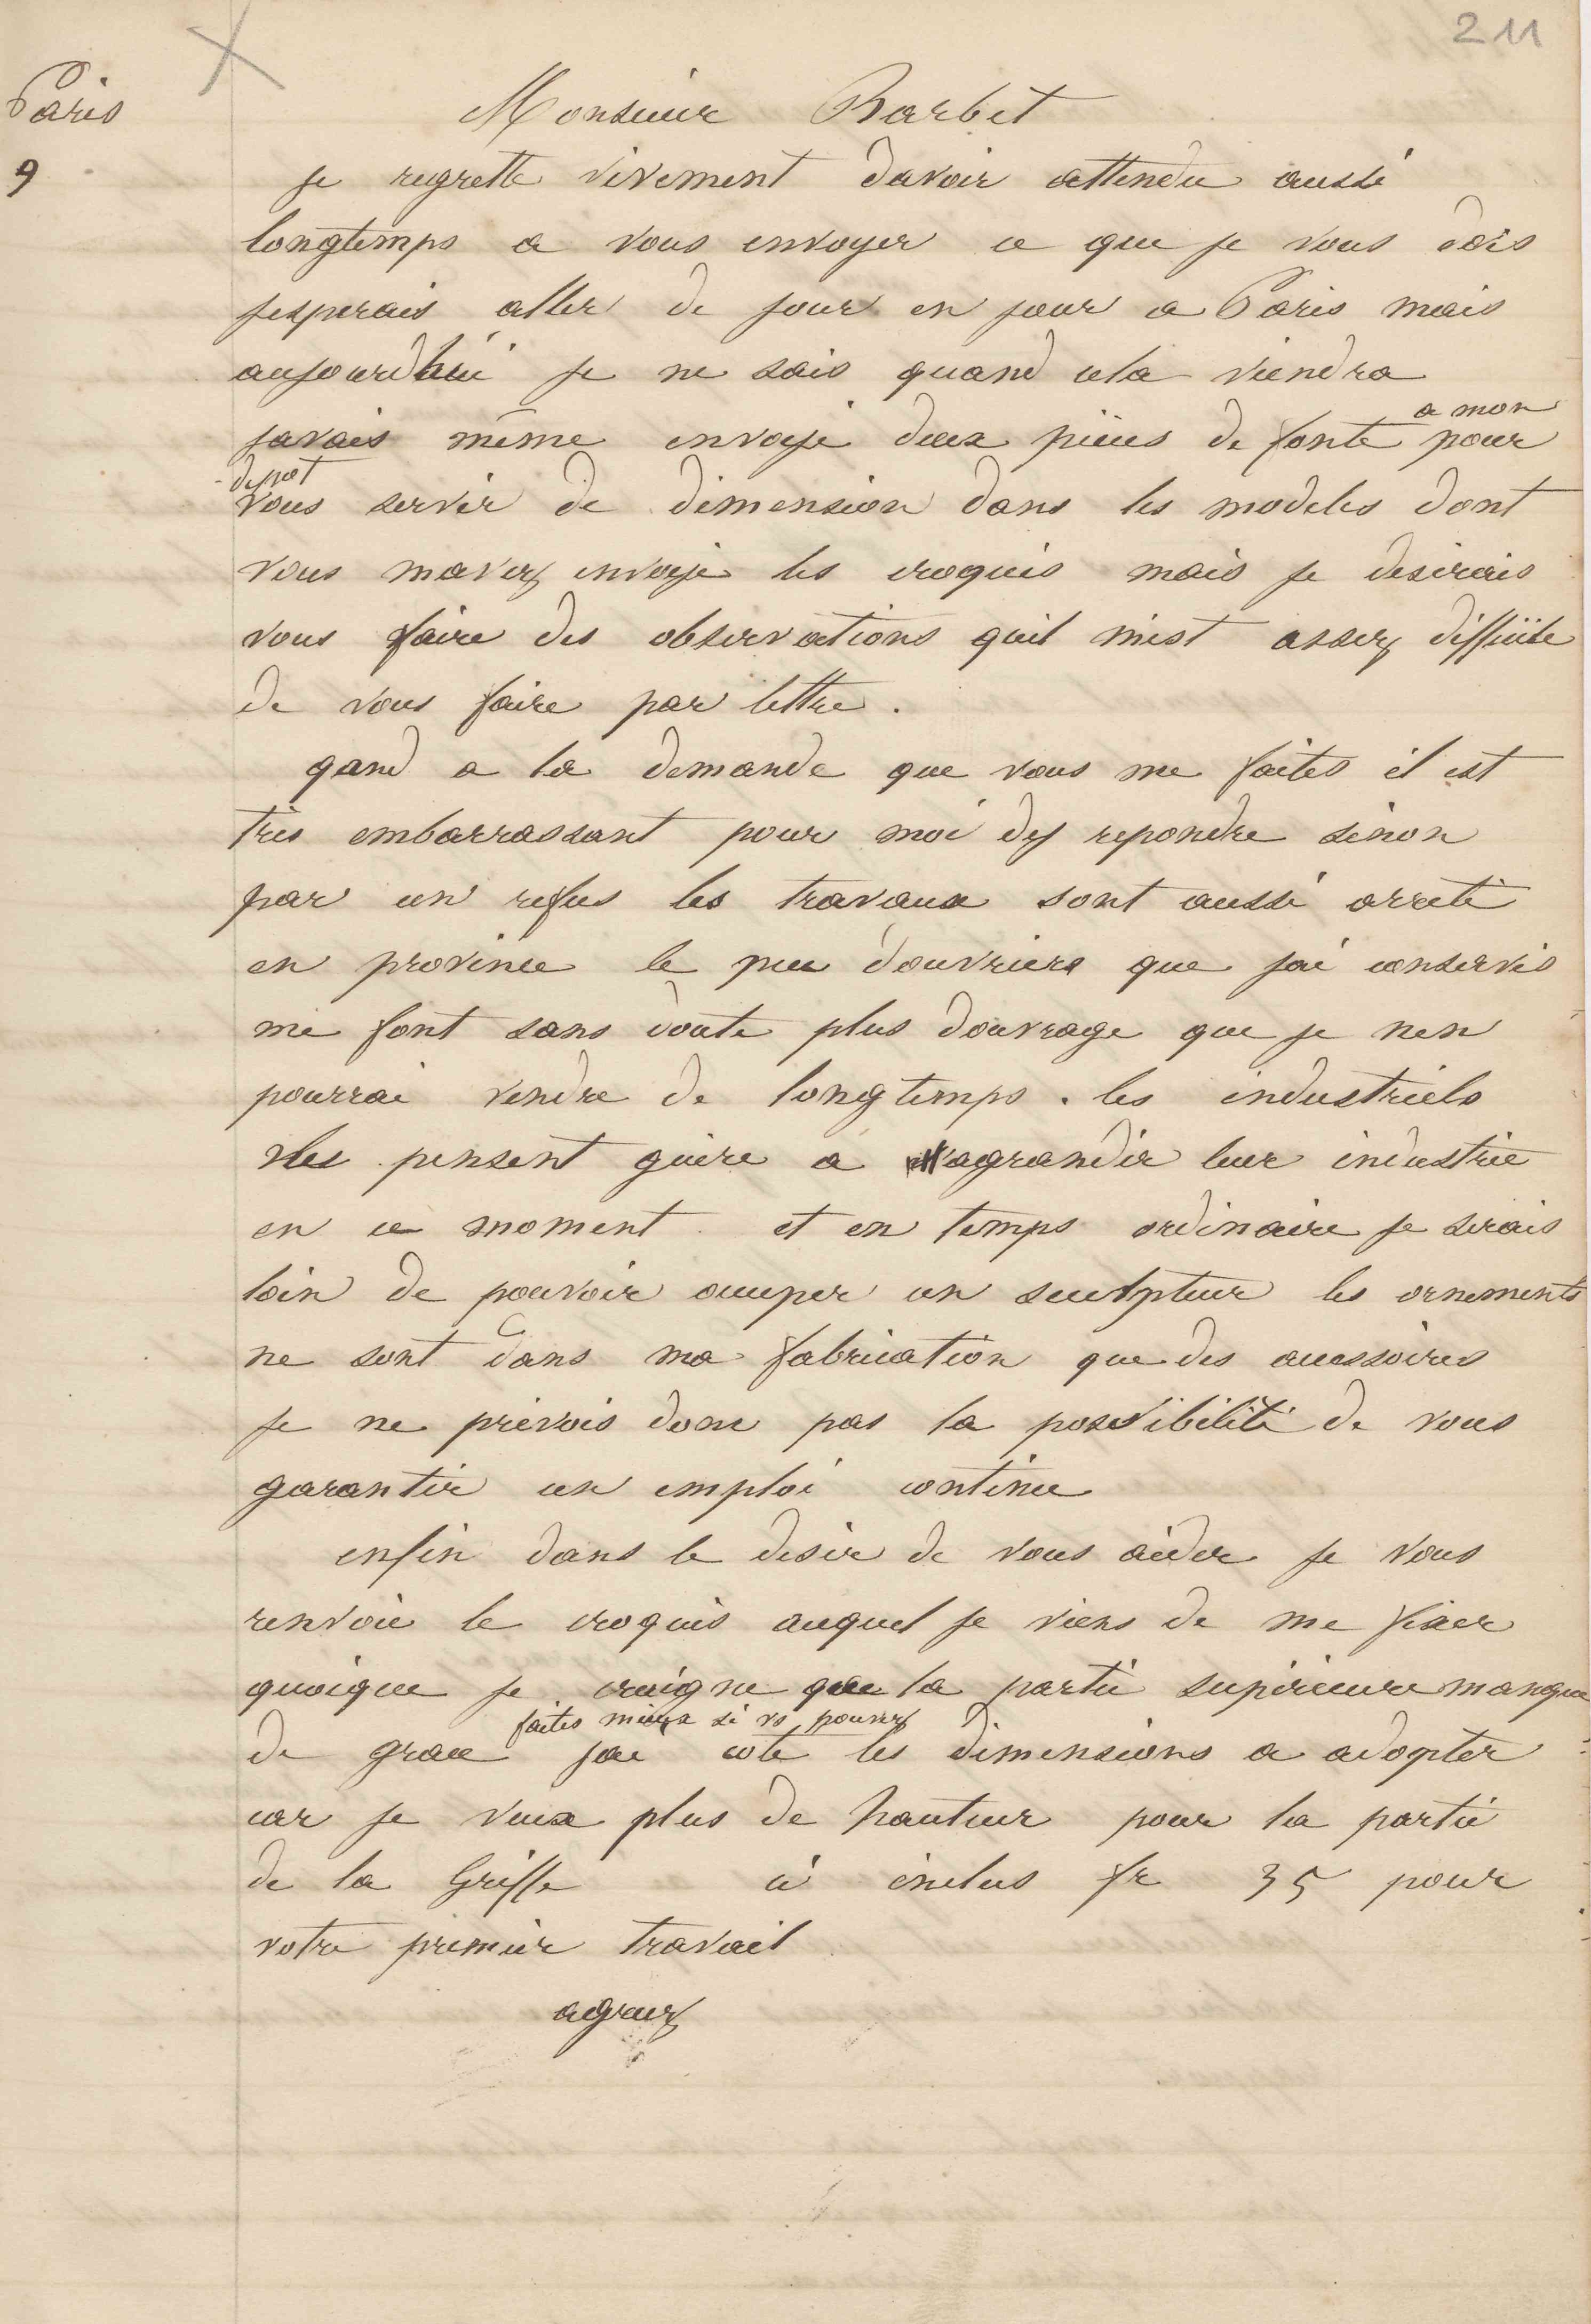 211
Paris
9
Monsieur Barbet
je regrette vivement davoir attendu aussi
longtemps a vous envoyer ce que je vous dois
jesperais aller de jour en jour a Paris mais
aujourdhui je ne sais quand cela viendra
a mon
javais même envoyé deux pièces de fonte pour
depot
vous servir de dimension dans les modeles dont
vous mavez envoyé les croquis mais je desirais
vous faire des observations quil mest assez difficile
de vous faire par lettre.
qand a la demande que vous me faites il est
très embarrassant pour moi dy repondre sinon
par un refus les travaux sont aussi arreté
en province le peu d'ouvriers que jai conservés
me font sans doute plus douvrage que je nen
pourrai vendre de longtemps. les industriels
ne pensent guère a agrandir leur industrie
en ce moment et en temps ordinaire je serais
loin de pouvoir occuper un sculpteur les ornements
ne sont dans ma fabrication que des accessoires
je ne prévois donc pas la possibilité de vous
garantir un emploi continu
enfin dans le desir de vous aider je vous
renvoie le croquis auquel je viens de me fixer
quoique je craigne que la partie supérieure manque
faites mieux si vs pouvez
de grace jai coté les dimensions a adopter
car je veux plus de hauteur pour la partie
de la Griffe ci inclus fr 35 pour
votre premier travail
agreez